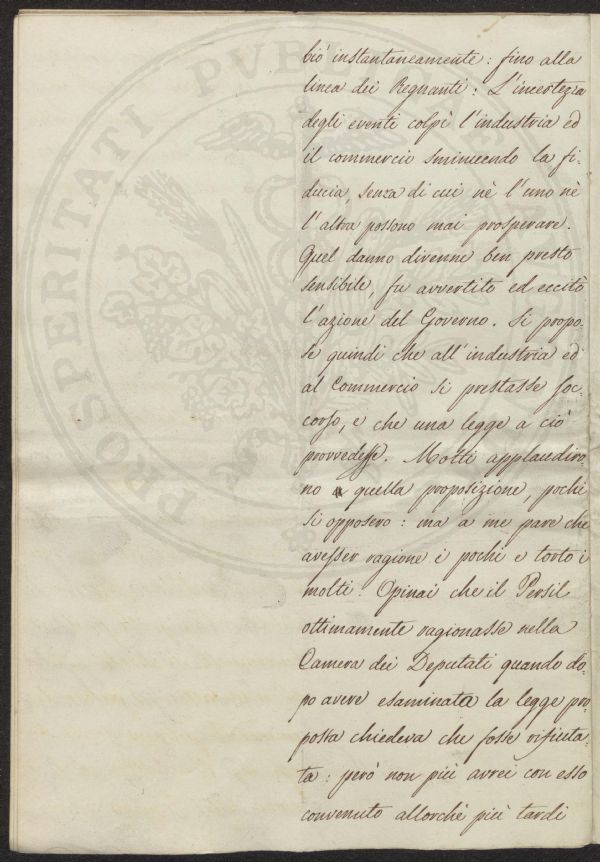 PROSPERITATI PVBLICAE A
biò instantaneamente: fino alla
linea dei Regnanti: L'incertezza
degli eventi colpì l'industria ed
il commercio sminuendo la fi-
ducia, senza di cui nè l'uno nè
l'altra possono mai prosperare.
Quel danno divenne ben presto
sensibile, fu avvertito ed eccitò
l'azione del Governo. Si propo-
se quindi che all'industria ed
al Commercio si prestasse soc-
corso, e che una legge a ciò
provvedesse. Molti applaudiro-
no a quella proposizione, pochi
si opposero: ma a me pare che
avesser ragione i pochi e torto i
molti. Opinai che il Persil
ottimamente ragionasse nella
Camera dei Deputati quando do-
po avere esaminata la legge pro-
posta chiedeva che fosse rifiuta-
ta: però non più avrei con esso
convenuto allorchè più tardi